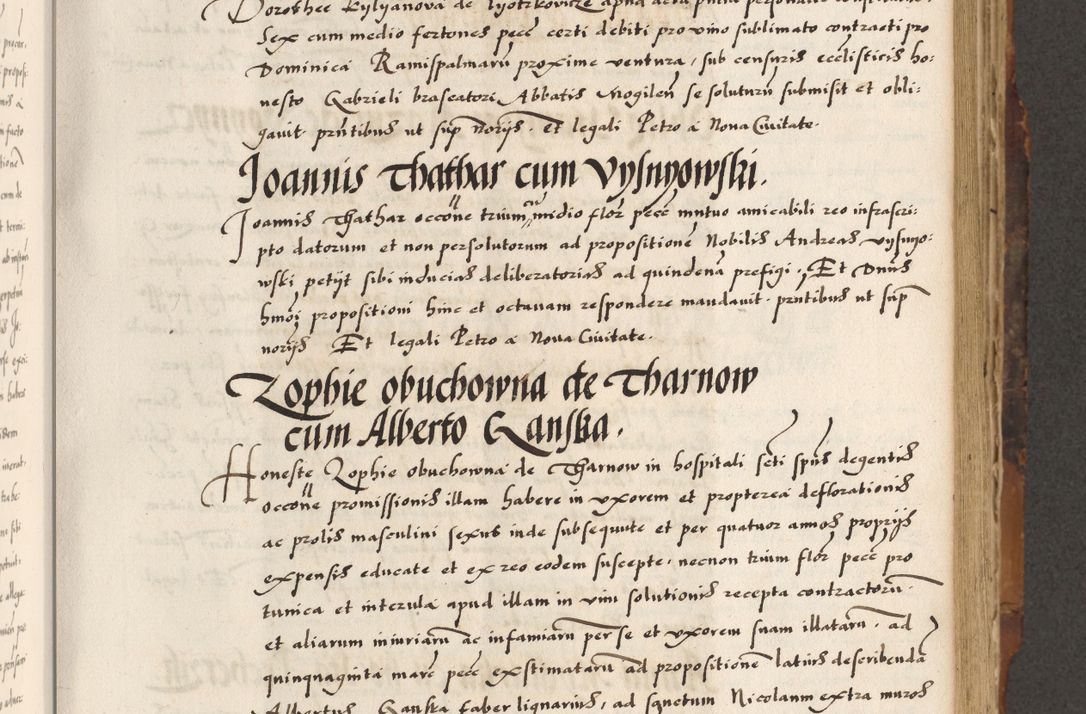 Dorothee Kylyanova de
Sex cum medio fertones pecc certi debiti pro vino sublimato contracti pro
Dominica Ramispalmarũ proxime ventura, sub censuris ecclisticis ho:
nesto Gabrieli braseatori Abbatis Mogilen̄ se soluturũ submisit et obli:
gavit. pn̄tibus ut sup̄ norijs. Et legali Petro a Nova Civitate.
Joannis Thathar cum Vysnyowski.
Joannis Thathar occōne trium cũ midio flor̄ pecc mutuo amicabili reo infrascri:
pto datorum et non persolutorum ad propositionē Nobilis Andreas vysnyo:
wski petijt sibi inducias deliberatorias ad quindenā prefigi. Et Dnūs
hmōi propositioni hinc et octavam respondere mandavit. pn̄tibus ut sup̄
norijs Et legali Petro a Nova Civitate.
Zophie obuchowna de Tharnow
cum Alberto Ganska.
Honeste Zophie obuchowna de Tharnow in hospitali sc̄ti sp̄us degentis
occōne promissionis illam habere in uxorem et propterea deflorationis
ac prolis masculini sexus inde subsequute et per quatuor annos proprijs
expensis educate et ex reo eodem suscepte, necnon trium flor̄ pecc pro
tunica et interula apud illam in vim solutionis recepta contractorũ.
et aliarum iniuriarũ ac infamiarũ per se et uxorem suam illatarũ, ad
quinquaginta marc̄ pecc existimatarũ ad propositionem latius describendā
Albertus Ganska faber lignarius, ad sanctum Nicolaum extra muros